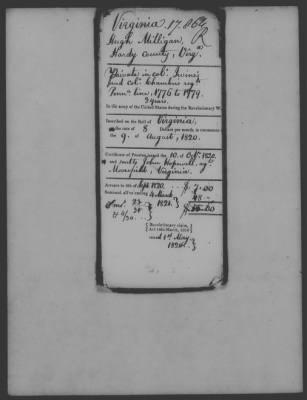 Virginia 17.864
R
Hugh Milligan,
Hardy county, Virga.
Private in col. Irwin's
and col. Chambers regt
Penna. line, 1776 to 1779
3 years.
in the army of the United States during the Revolutionary W
Inscribed on the Roll of Virginia,
at the rate of 8 Dollars per month, to commence
the 9. of August, 1820.
Certificate of Pension issued the 10. of Octr. 1820.
John Hopwell, agt.
Moorefield, Virginia.
Arrears to 4th of Sept. 1820. $ 7.00
Semi-anl. all'ce ending 4 March 1821. 48
$ 55.00
{ Revolutionary claim,
Act 18th March, 1818 }
and 1st May
1820. }